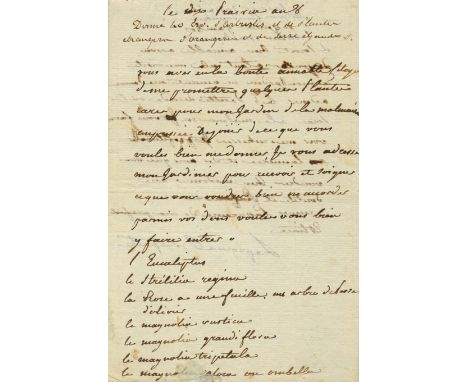 le Prairial an 8
Donné 40 d'arbustes et de Plantes
étrangères d'orangerie et de serre chaude
vous avez eu la bonté
de me promettre quelques Plantes
rares pour mon Jardin de la malmaison
de ce que vous
voulez bien me donner Je vous adresse
mon Jardinier pour recevoir et soigner
ce que vous voudrez bien m accorder
parmis vos dons voulez vous bien
y faire entrer
l Eucaliptus
le Strélitia regina
la Rose a une feuille, un arbre de
d'olivier
le magnolia rustica
le magnolia grandiflora
le magnolia tripetala
le magnolia